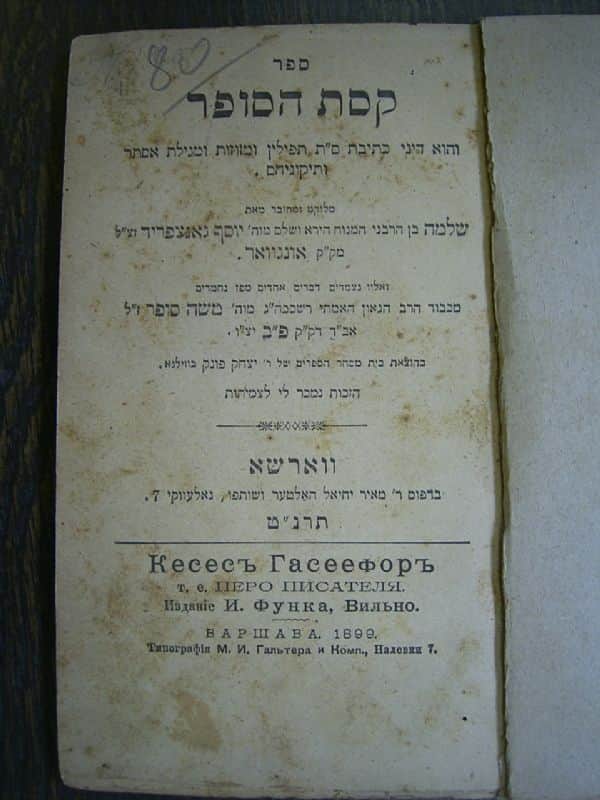 80
ספר
קסת הסופר
והוא דיני כתיבת ס"ת תפילין ומזוזות ומגילת אסתר
ותיקוניהם .
מלוקט ומחובר מאת
שלמה בן הרבני המנוח הירא ושלם מוה' יוסף גאנצפריד זצ"ל
מק"ק אונגוואר .
ואליו נצמדים דברים אחדים מפז נחמדים
מכבוד הרב הגאון האמתי רשכבה"ג מוה' משה סופר ז"ל
אב"ד דק"ק פ"ב יצ"ו .
בהוצאת בית מסחר הספרים של ר' יצחק פונק בווילנא .
הזכות נמכר לי לצמיתות
ווארשא
בדפוס ר' מאיר יחיאל האלטער ושותפו, נאלעווקי 7.
תרנ"ט
Кесесъ Гасеефоръ
т. е. ПЕРО ПИСАТЕЛЯ.
Изданіе И. Функа, Вильно.
ВАРШАВА. 1899.
Типографія М. И. Гальтера и Комп., Налевки 7.